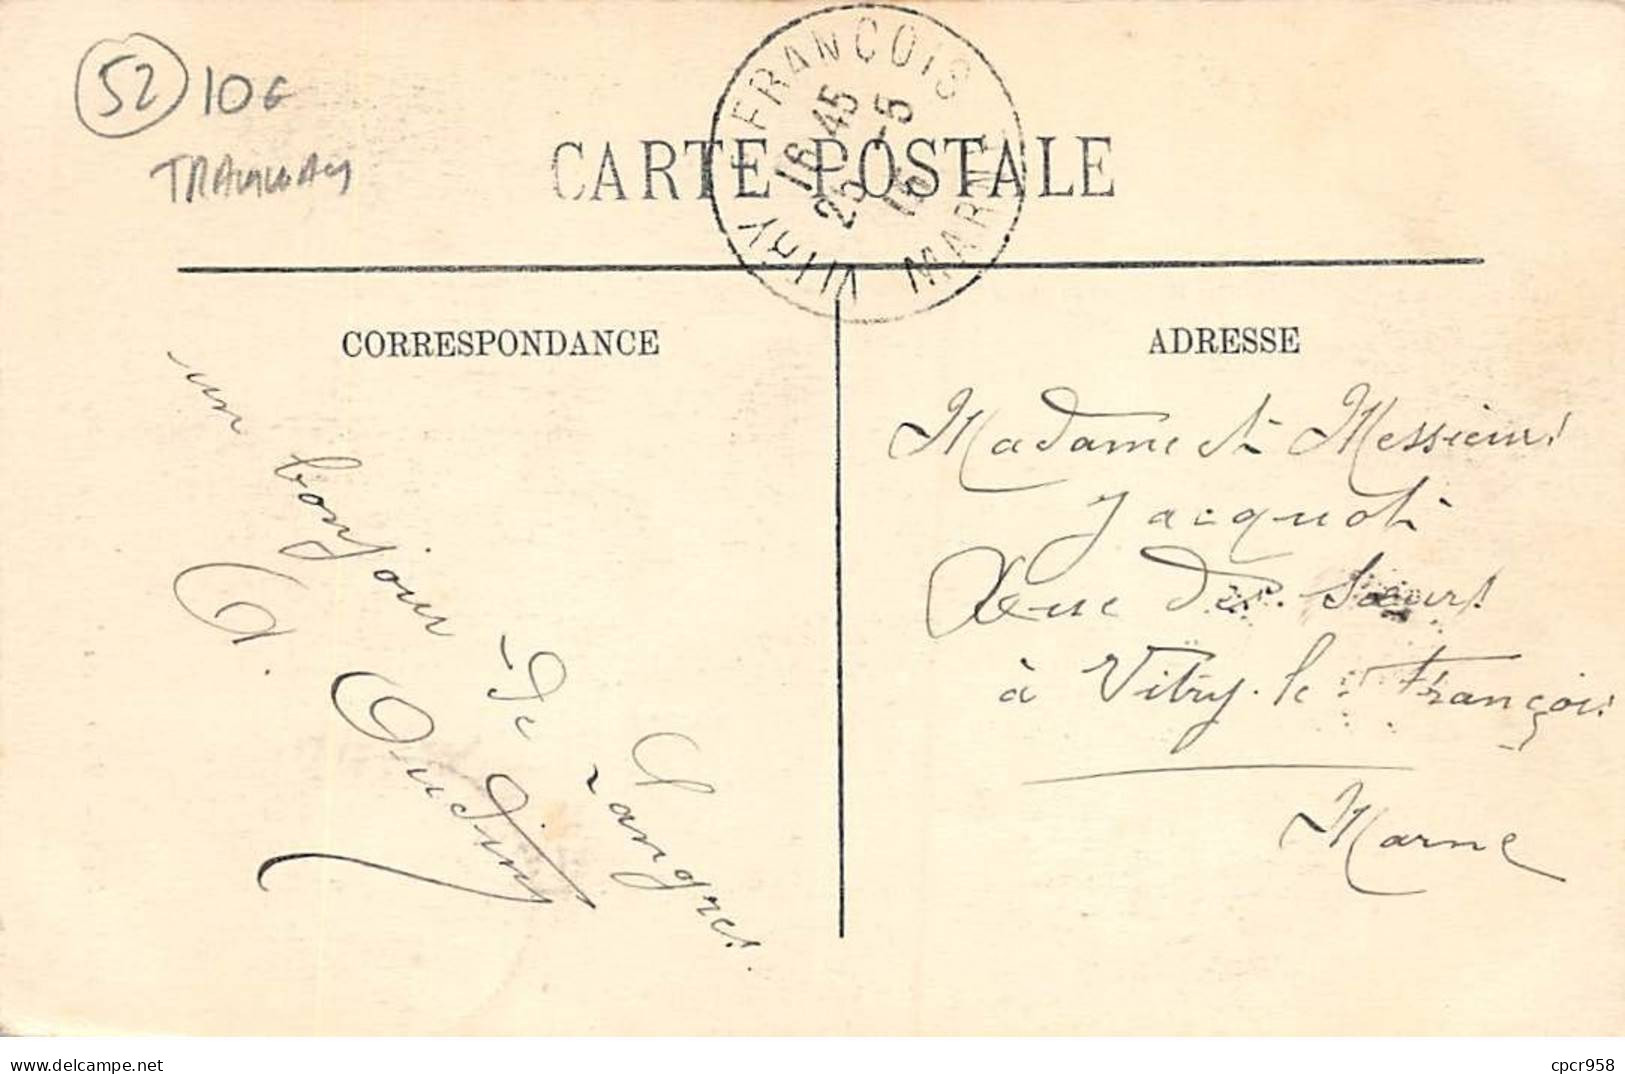 52 10€
TRAMWAY
CARTE POSTALE
VITRY-LE-FRANÇOIS
16 45
25 -5
MARNE
CORRESPONDANCE
un bonjour de Langres.
A. Oudin
ADRESSE
Madame et Messieurs
Jacquot
Rue des Sœurs
à Vitry-le-François
Marne
www.delcampe.net
cpcr958